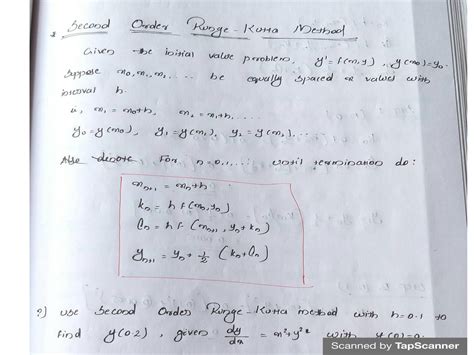 Second Order Runge-Kutta Method
Given the initial value problem, y' = f(x,y), y(x0)=y0.
Suppose x0, x1, x2, ... be equally spaced x values with
interval h.
ie, x1 = x0+h, x2 = x1+h, ....
y0 = y(x0), y1 = y(x1), y2 = y(x2)...
Also denote For n=0,1,.... until termination do:
xn+1 = xn+h
kn = h f(xn,yn)
ln = h f(xn+1, yn+kn)
yn+1 = yn + 1/2 (kn+ln)
?) Use Second Order Runge-Kutta method with h=0.1 to
find y(0.2), given dy/dx = x²+y² with y(0)=0.
Scanned by TapScanner